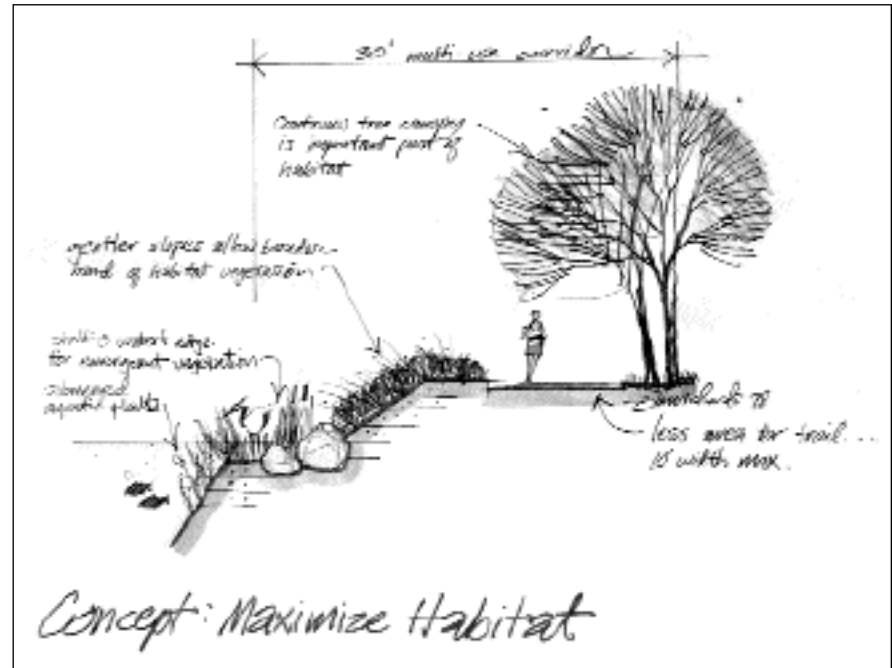 30' multi use corridor
Continuous tree canopy
is important part of
habitat
gentler slopes allow broader
band of habitat vegetation
shelf @ water's edge
for emergent vegetation
submerged
aquatic plants
less area for trail...
10' width max.
Concept: Maximize Habitat